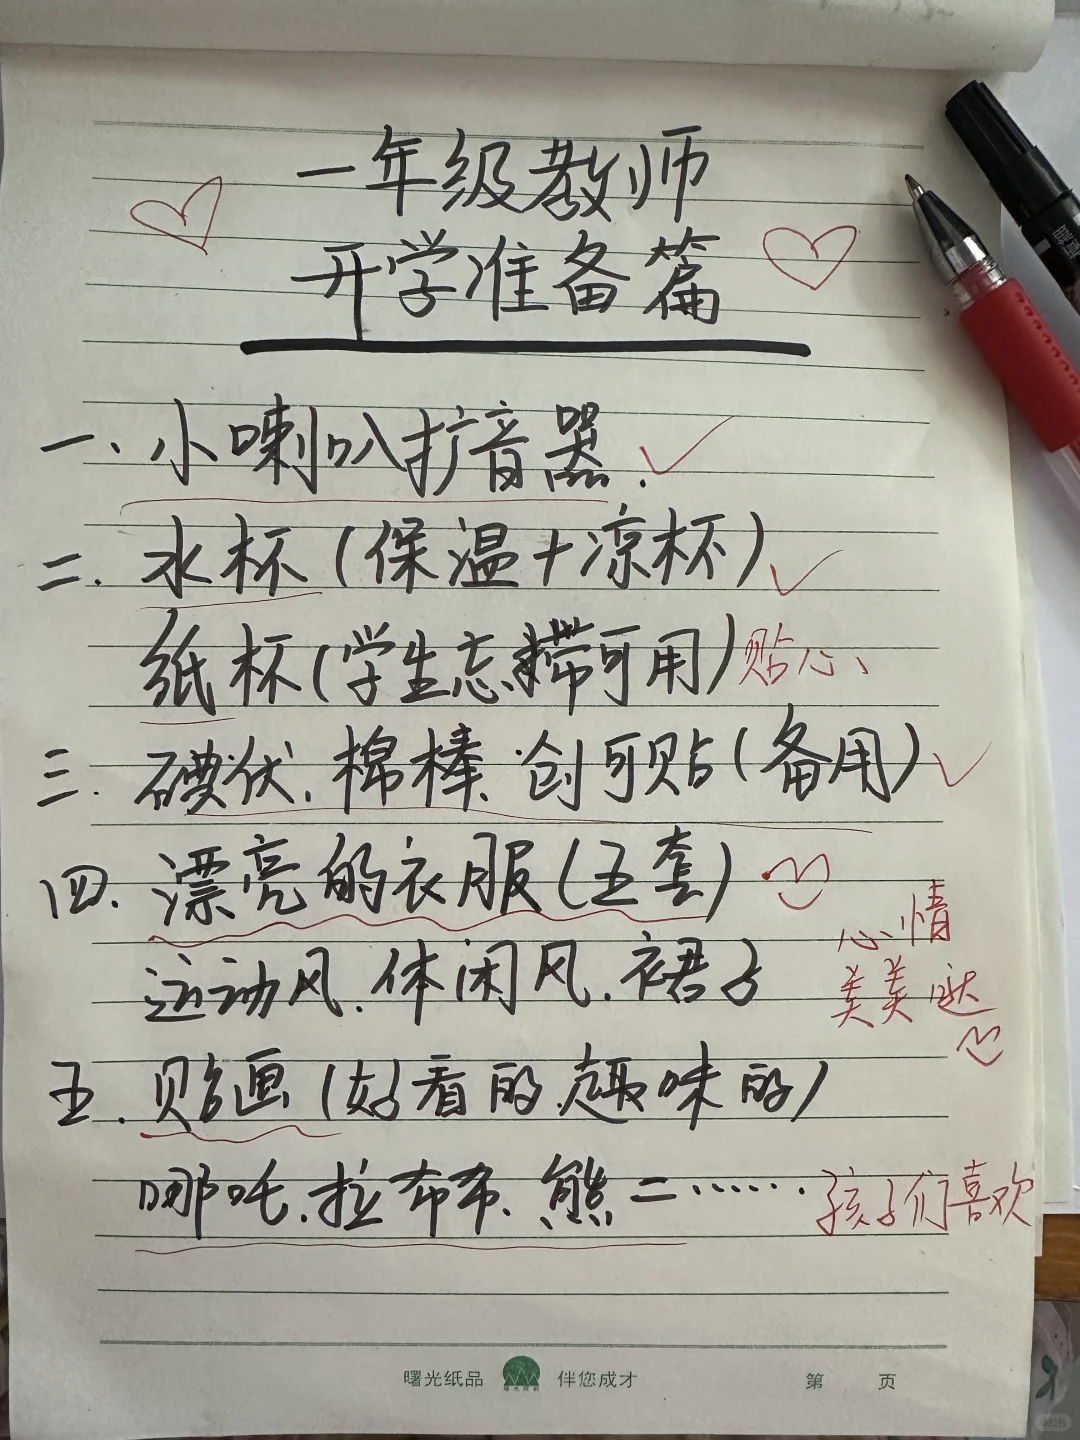 一年级教师
开学准备篇
一、小喇叭扩音器.
二.水杯(保温+凉杯)
纸杯(学生忘带可用)贴心、
三.碘伏.棉棒.创可贴(备用)
四.漂亮的衣服(五套)
心情
运动风.体闲风.裙子
美美哒
五.贴画(好看的.趣味的)
哪吒.拉布布.熊二……
孩子们喜欢
曙光纸品 伴您成才 第 页